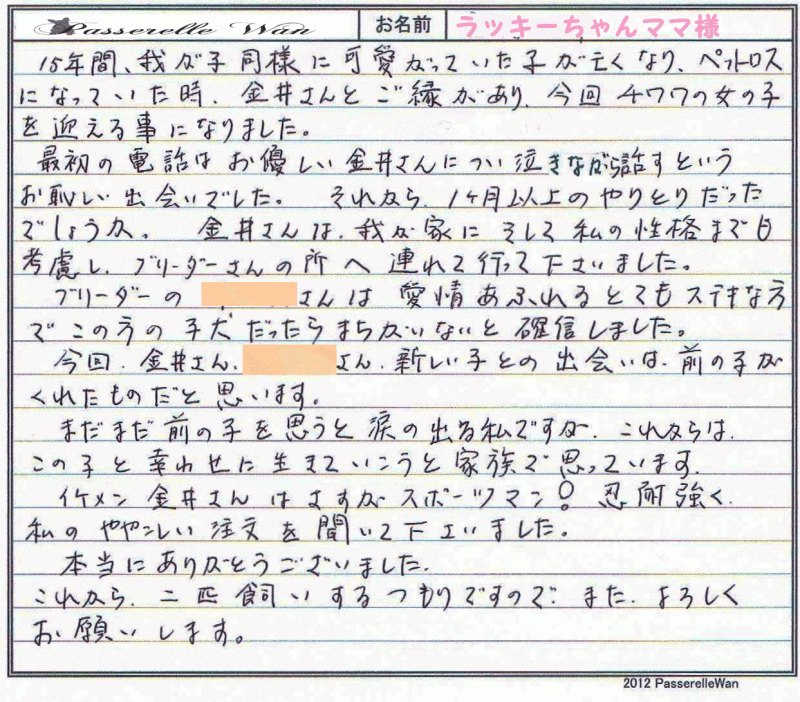 Passerelle Wan お名前 ラッキーちゃんママ様
15年間、我が子同様に可愛がっていた子が亡くなり、ペットロス
になっていた時、金井さんとご縁があり、今回チワワの女の子
を迎える事になりました。
最初の電話はお優しい金井さんについ泣きながら話すという
お恥しい出会いでした。 それから、1ヶ月以上のやりとりだった
でしょうか。 金井さんは、我が家にそして私の性格までも
考慮し、ブリーダーさんの所へ連れて行って下さいました。
ブリーダーの さんは愛情あふれるとてもステキな方
でこの方の子犬だったらまちがいないと確信しました。
今回、金井さん、 さん、新しい子との出会いは、前の子が
くれたものだと思います。
まだまだ前の子を思うと涙の出る私ですが、これからは、
この子と幸わせに生きていこうと家族で思っています。
イケメン金井さんはさすがスポーツマン!忍耐強く、
私のややこしい注文を聞いて下さいました。
本当にありがとうございました。
これから、二匹飼いするつもりですので、また、よろしく
お願いします。
2012 PasserelleWan